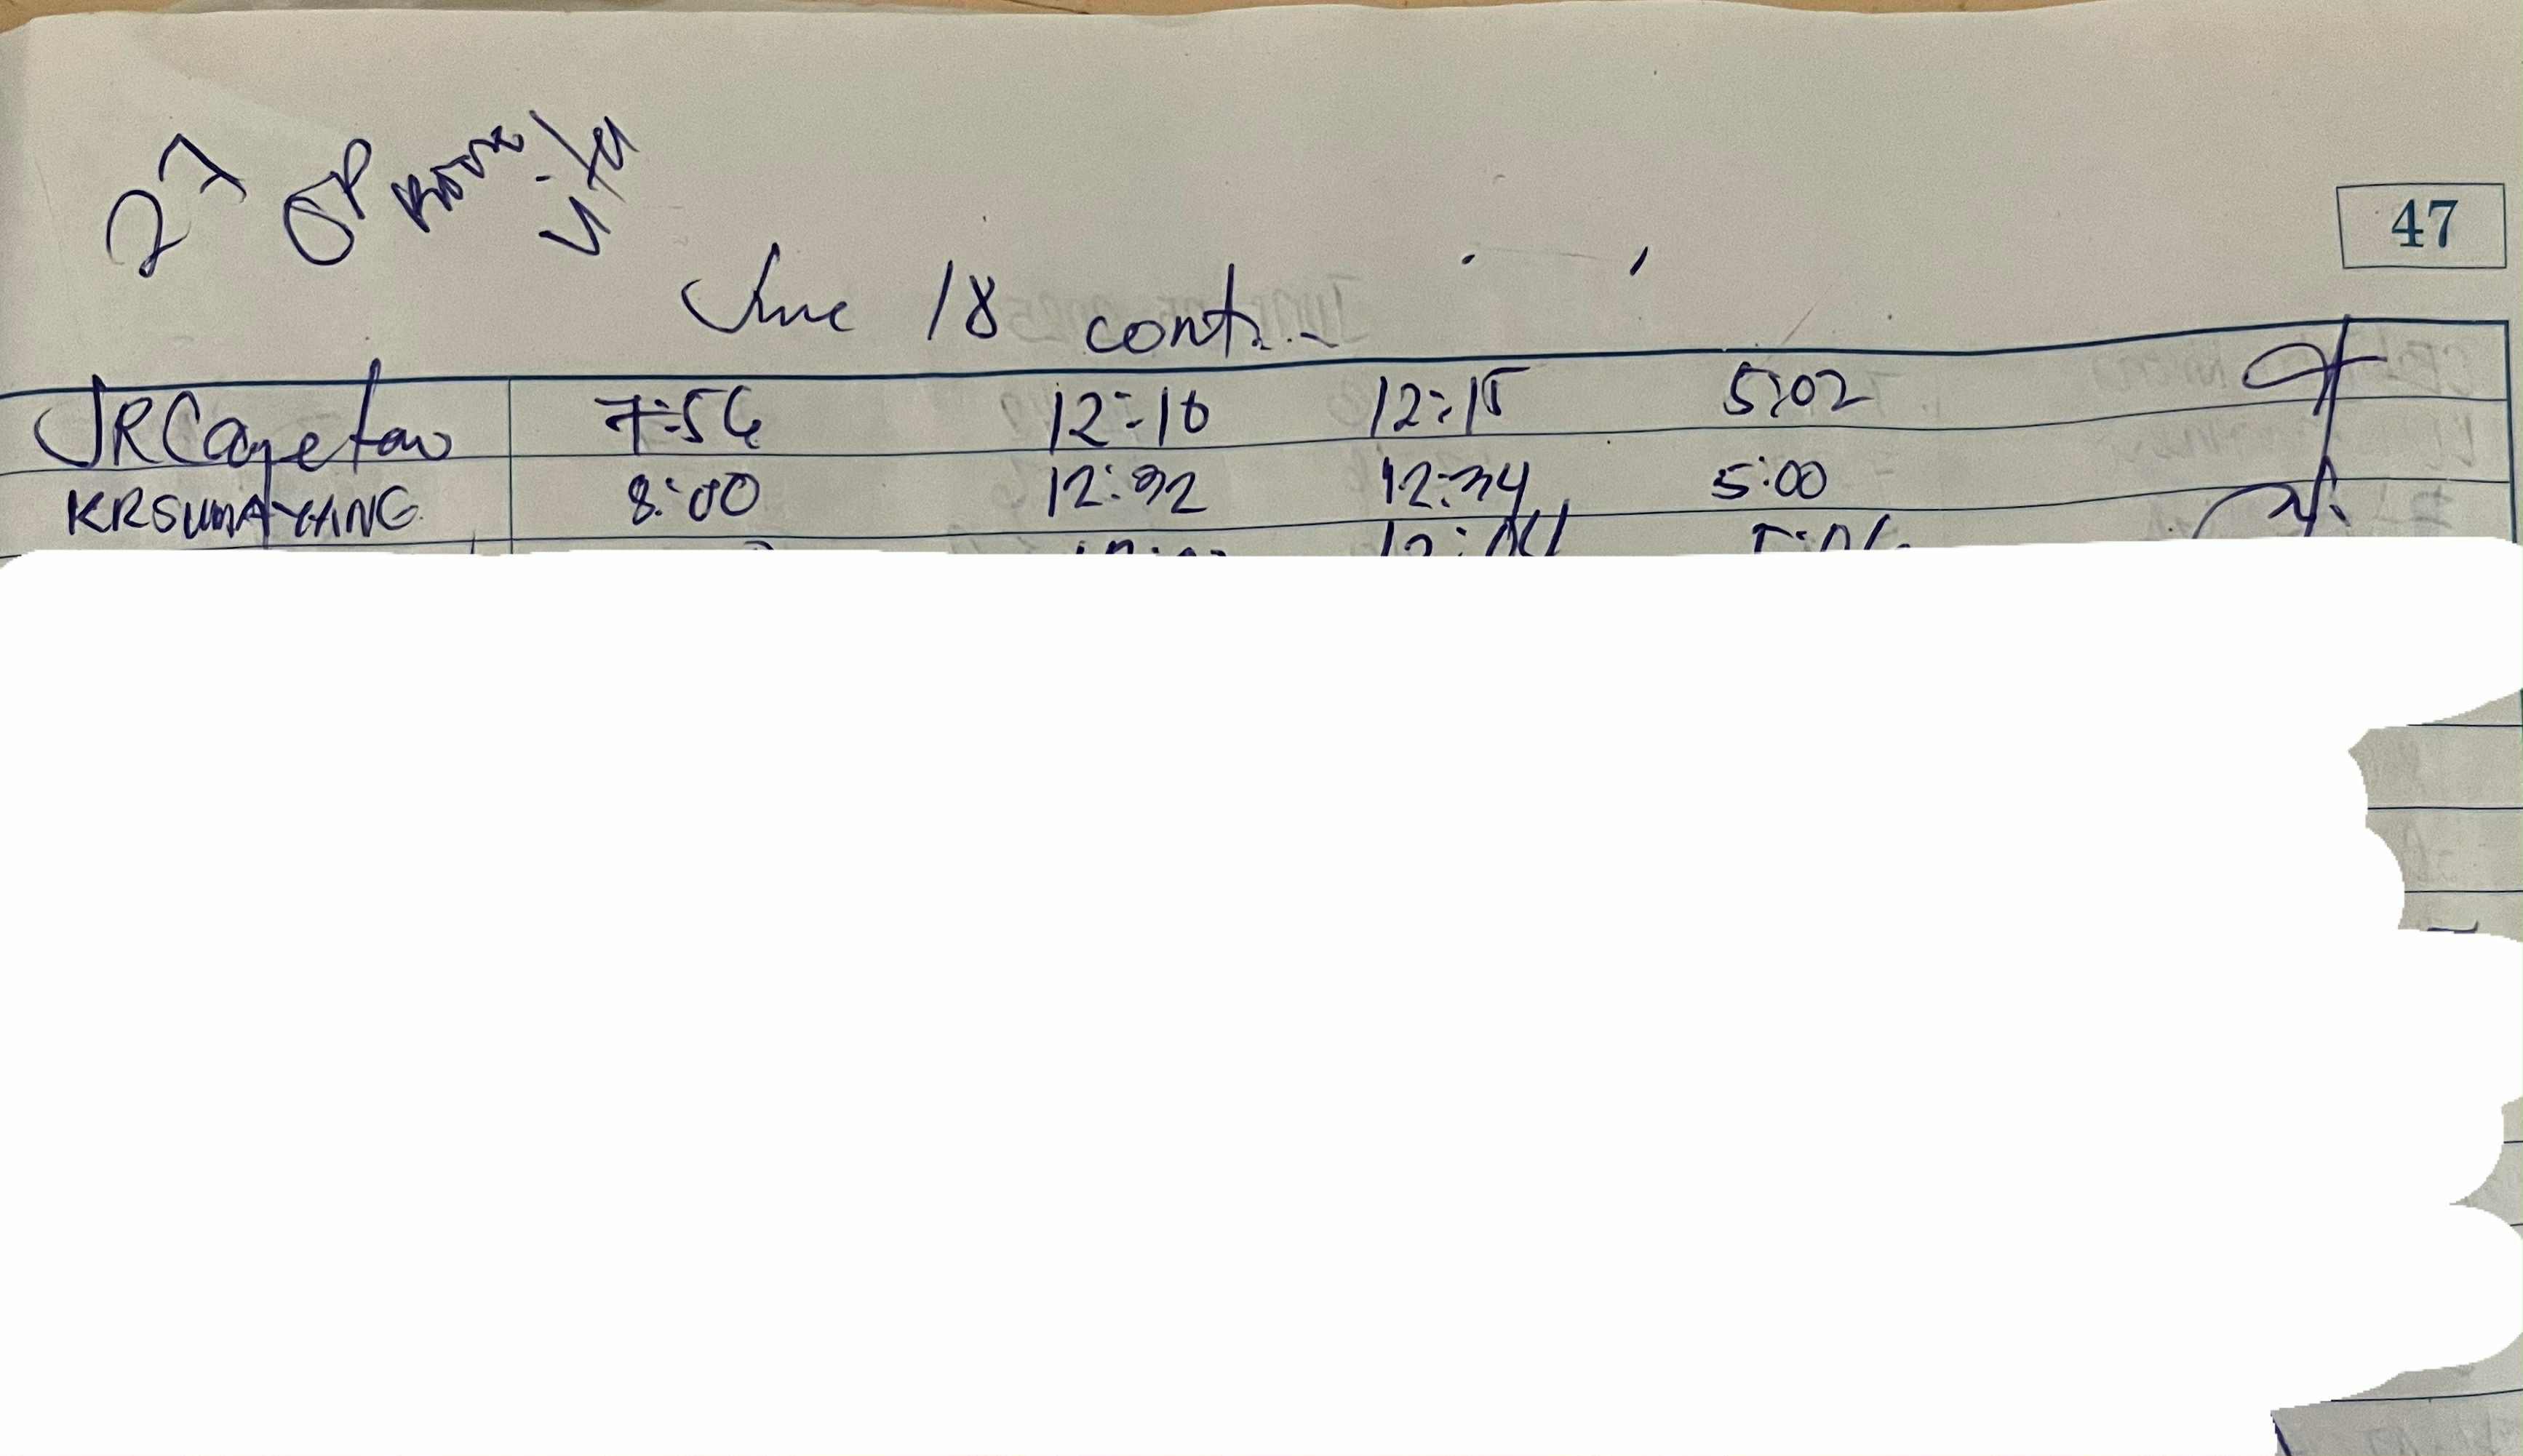 27 OP
47
June 18 cont.
JRCayetano 7:56 12:10 12:15 5:02
KRSUMAYANG 8:00 12:32 12:34 5:00